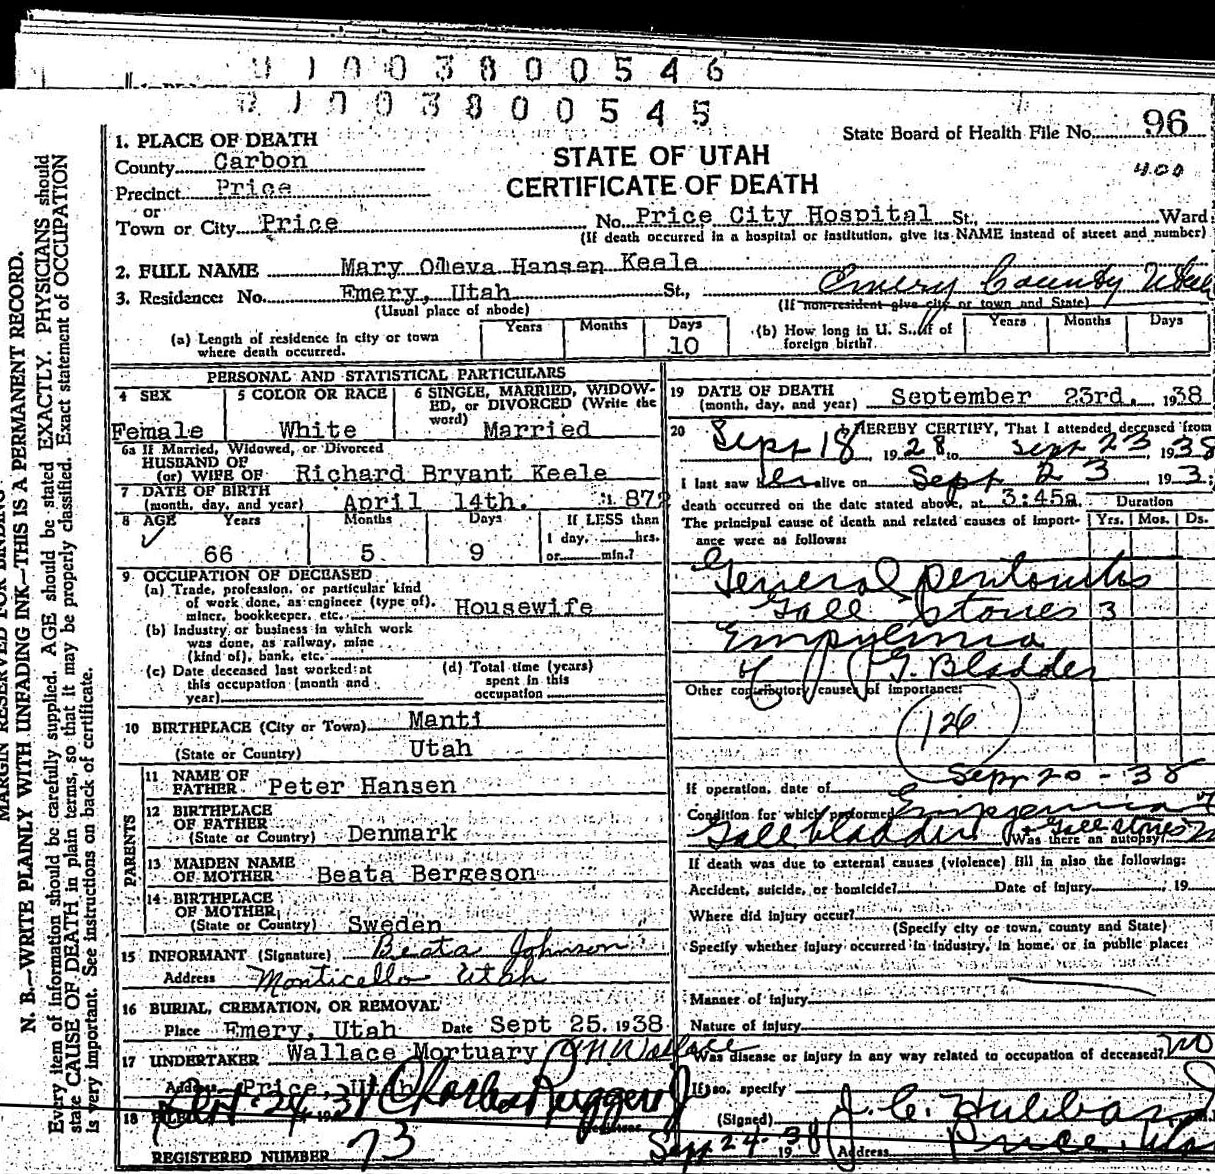 0 1 0 0 3 8 0 0 5 4 6
0 1 0 0 3 8 0 0 5 4 5
State Board of Health File No. 96
400
STATE OF UTAH
CERTIFICATE OF DEATH
1. PLACE OF DEATH
County Carbon
Precinct Price
or
Town or City Price No. Price City Hospital St., Ward
(If death occurred in a hospital or institution, give its NAME instead of street and number)
2. FULL NAME Mary Olieva Hansen Keele
3. Residence: No. Emery, Utah St., Emery County Utah
(Usual place of abode) (If non-resident give city or town and State)
(a) Length of residence in city or town where death occurred. Years Months Days 10
(b) How long in U. S. if of foreign birth? Years Months Days
PERSONAL AND STATISTICAL PARTICULARS
4 SEX Female
5 COLOR OR RACE White
6 SINGLE, MARRIED, WIDOWED, or DIVORCED (Write the word) Married
6a If Married, Widowed, or Divorced
HUSBAND OF
(or) WIFE OF Richard Bryant Keele
7 DATE OF BIRTH
(month, day, and year) April 14th. 1872
8 AGE Years 66 Months 5 Days 9 If LESS than 1 day, hrs. or min.?
9 OCCUPATION OF DECEASED
(a) Trade, profession, or particular kind
of work done, as engineer (type of),
miner, bookkeeper, etc. Housewife
(b) Industry or business in which work
was done, as railway, mine
(kind of), bank, etc.
(c) Date deceased last worked at
this occupation (month and
year)
(d) Total time (years)
spent in this
occupation
10 BIRTHPLACE (City or Town) Manti
(State or Country) Utah
PARENTS
11 NAME OF
FATHER Peter Hansen
12 BIRTHPLACE
OF FATHER
(State or Country) Denmark
13 MAIDEN NAME
OF MOTHER Beata Bergeson
14 BIRTHPLACE
OF MOTHER
(State or Country) Sweden
15 INFORMANT (Signature) Beata Johnson
Address Monticello Utah
16 BURIAL, CREMATION, OR REMOVAL
Place Emery, Utah Date Sept 25, 1938
17 UNDERTAKER Wallace Mortuary J N Wallace
Address Price, Utah
18
REGISTERED NUMBER 73
19 DATE OF DEATH
(month, day, and year) September 23rd. 1938
20 I HEREBY CERTIFY, That I attended deceased from
Sept 18, 1928, to Sept 23, 1938
I last saw her alive on Sept 23 193
death occurred on the date stated above, at 3:45a. Duration
The principal cause of death and related causes of importance were as follows: Yrs. Mos. Ds.
General peritonitis
Gall Stones 3
Empyemia
of G. Bladder
Other contributory causes of importance:
126
If operation, date of Sept 20 - 38
Condition for which performed Empyemia of
Gall bladder + Gall stones Was there an autopsy?
If death was due to external causes (violence) fill in also the following:
Accident, suicide, or homicide? Date of Injury 19
Where did injury occur?
(Specify city or town, county and State)
Specify whether injury occurred in industry, in home, or in public place:
Manner of injury
Nature of injury
Was disease or injury in any way related to occupation of deceased? no
If so, specify
(Signed) J. C. Hubbard
Sept 24 - 1938 Address Price, Utah
MARGIN RESERVED FOR BINDING
N. B.—WRITE PLAINLY WITH UNFADING INK—THIS IS A PERMANENT RECORD.
Every item of information should be carefully supplied. AGE should be stated EXACTLY. PHYSICIANS should
state CAUSE OF DEATH in plain terms, so that it may be properly classified. Exact statement of OCCUPATION
is very important. See instructions on back of certificate.